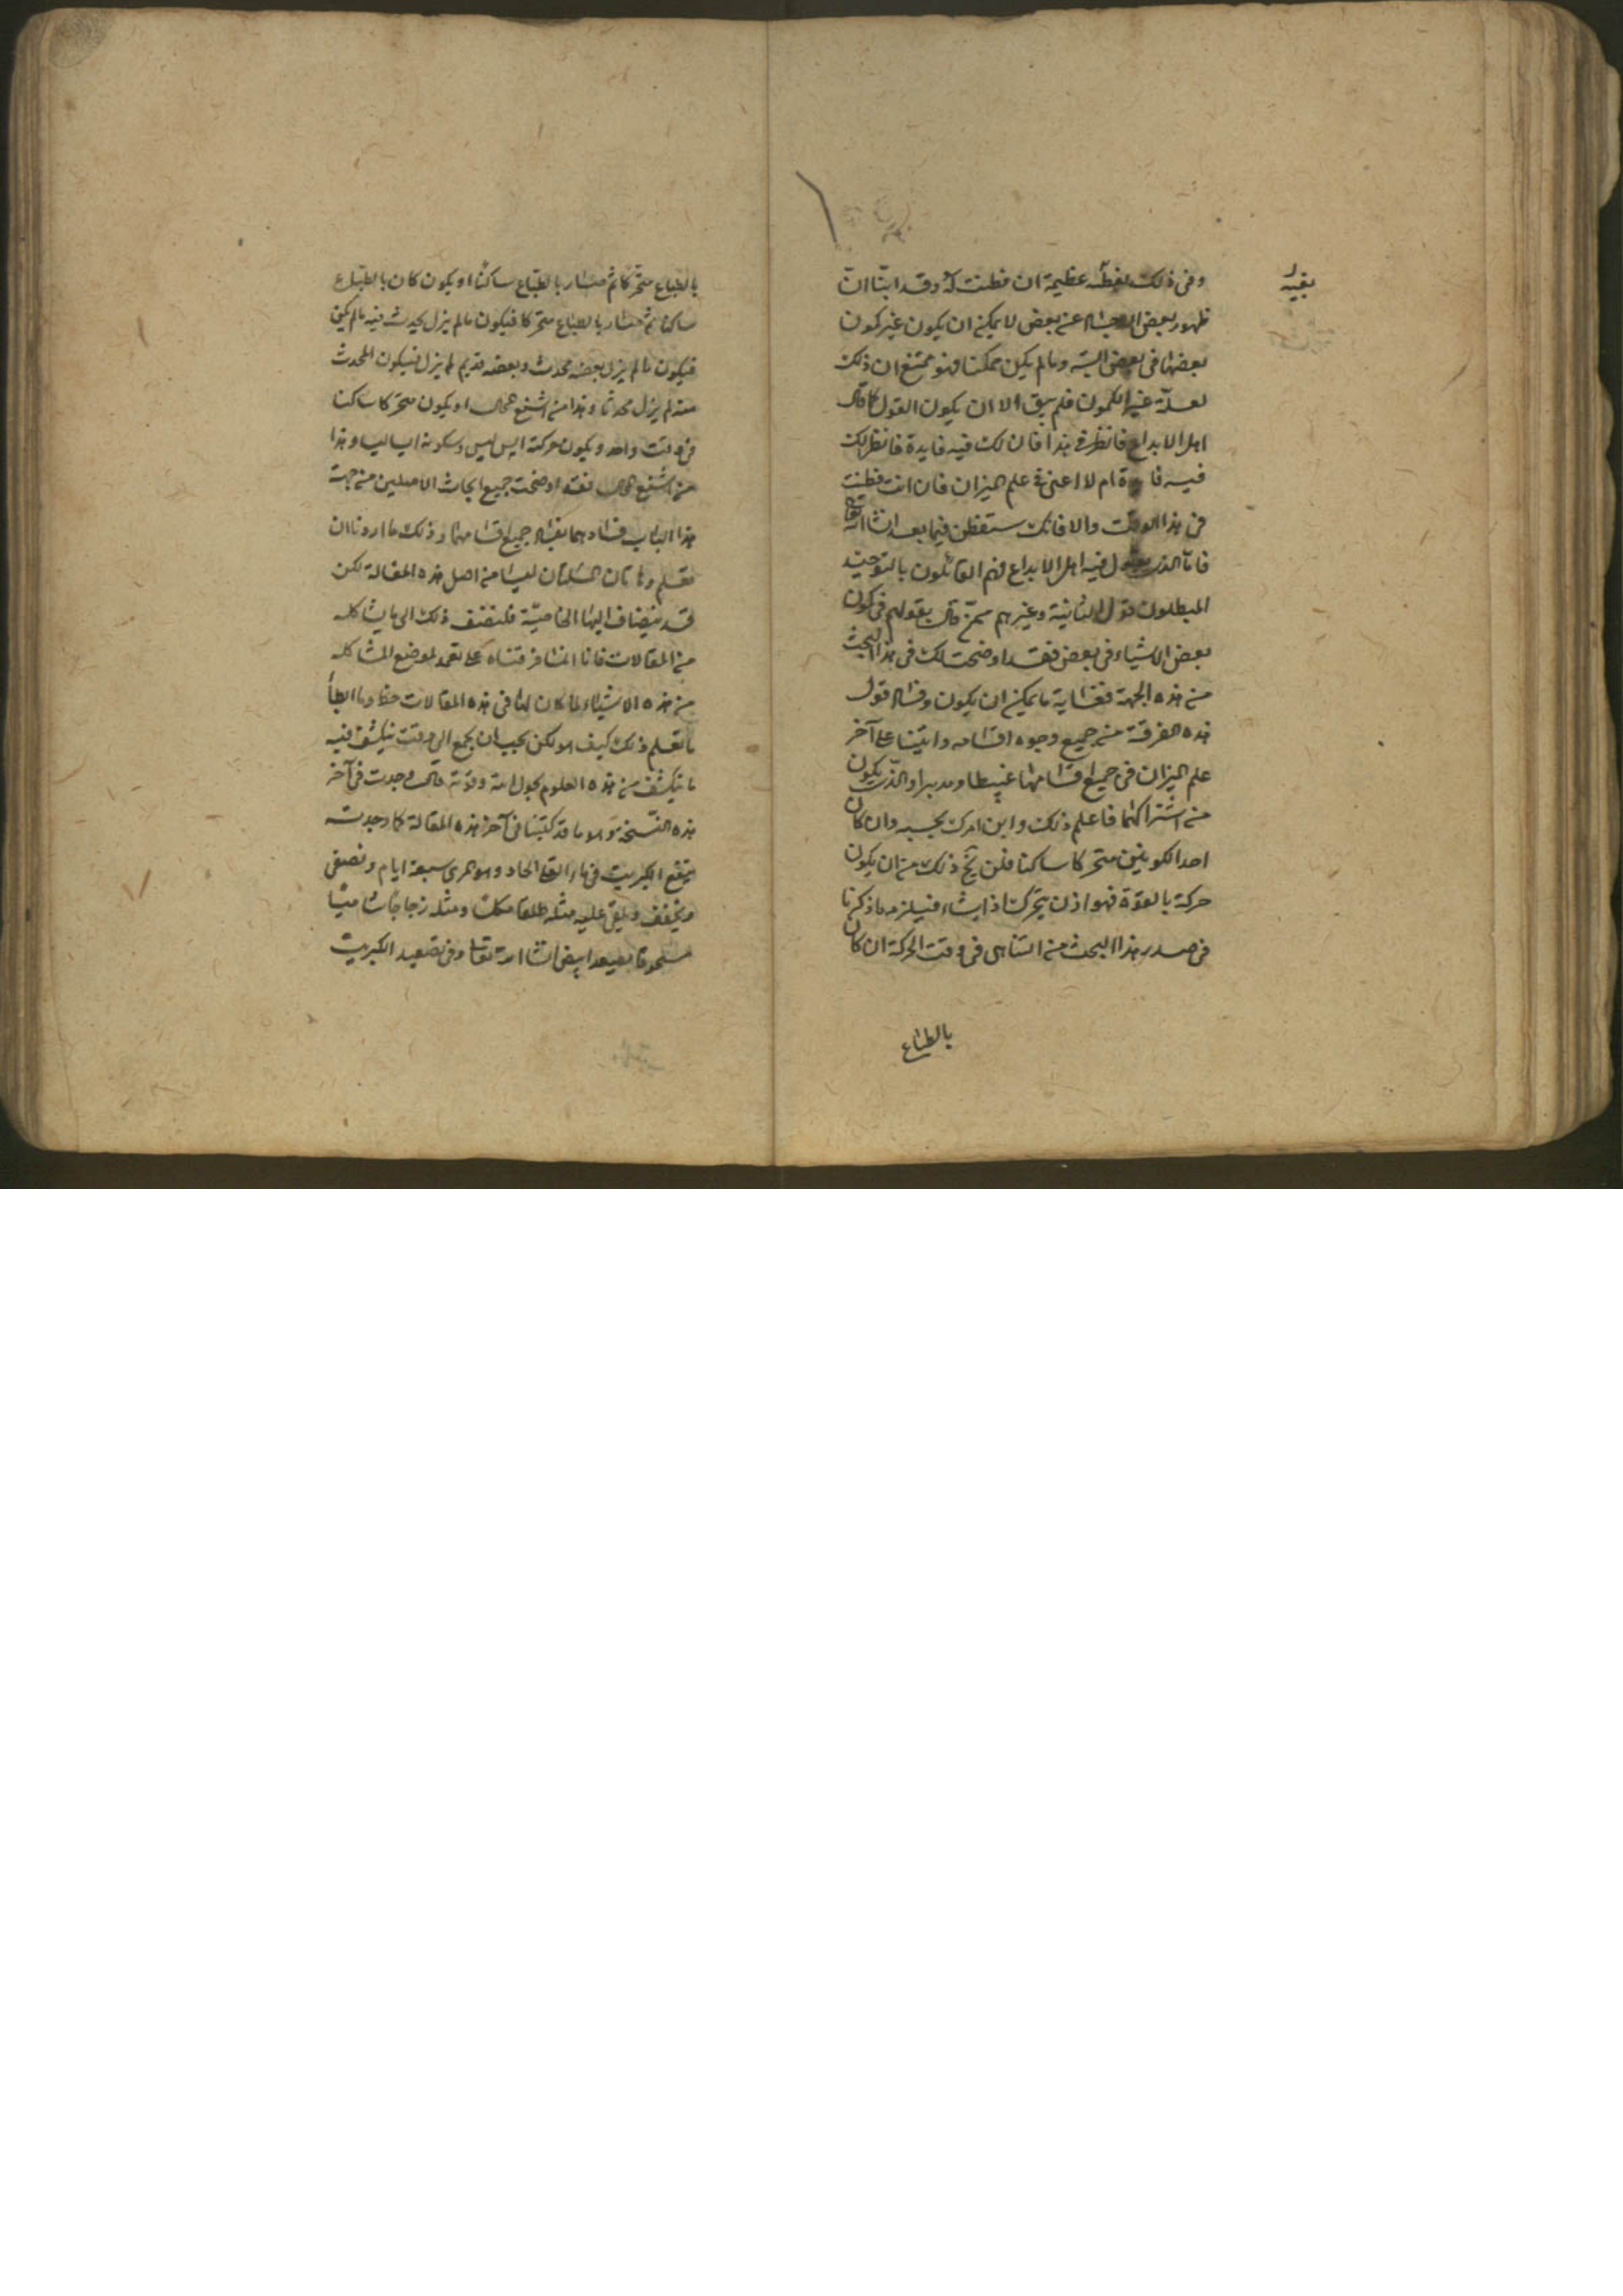 بقيه
وفى ذلك لفطنة عظيمة ان فطنت له وقد ابنا ان
ظهور بعض الاجسام عن بعض لا يمكن ان يكون غير كمون
بعضها فى بعض البتة وما لم يكن ممكنا فهو ممتنع ان ذلك
لعلة غير الكمون فلم يبق الا ان يكون القول كما قال
اهل الابداع فانظر فى هذا فان لك فيه فايدة فانظر لك
فيه ام لا اعنى فى علم الميزان فان انت فطنت
فى هذا الوقت والا فانك ستفطن فيما بعد انشا الله تعالى
فاما الذى يقول فيه اهل الابداع فهم القائلون بالتوحيد
المبطلون قول المانية وغيرهم ممن قال بقولهم فى كون
بعض الاشياء فى بعض فقد اوضحت لك فى هذا البحث
من هذه الجهة فغاية ما يمكن ان يكون وفساد قول
هذه الفرقة من جميع وجوه اقسامه واتينا على آخر
علم الميزان فى جميع اقسامها غبيطا ومدبرا والذى يكون
من اشتراكهما فاعلم ذلك وابن امرك بحسبه وان كان
احد الكونين متحركا ساكنا فلن يخ ذلك من ان يكون
حركة بالقوة فهو اذن يتحرك اذا يشاء فيلزمه ما ذكرنا
فى صدر هذا البحث من التناهى فى وقت الحركة ان كان
بالطباع
بالطباع متحركا ثم صار بالطباع ساكنا او يكون كان بالطباع
ساكنا ثم صار بالطباع متحركا فيكون ما لم يزل يحدث فيه ما لم يكن
فيكون ما لم يزل بعضه محدث وبعضه قديم لم يزل فيكون المحدث
منه لم يزل محدثا وهذا من اشنع المحال او يكون متحركا ساكنا
فى وقت واحد ويكون حركته ايس ليس وسكونه ايسا ليسا وهذا
من اشنع المحال فقد اوضحت جميع ابحاث الاصلين من جهة
هذا الباب فسادهما بفساد جميع اقسامهما وذلك ما اردنا ان
نعلم وهاتان المسلتان ليستا من اصل هذه المقالة لكن
قد ينضاف اليها الخاصية فلنضف ذلك الى ما يشاكله
من المقالات فانا انما فرقناه على تعمد لموضع المشاكله
من هذه الاشياء لما كان لها فى هذه المقالات حظ وما ابطأ
ما تعلم ذلك كيف هو لكن يجب ان يجمع الى وقت ينكشف فيه
ما ينكشف من هذه العلوم بحول الله وقوته قال وجدت فى آخر
هذه النسخة هو ما قد كتبنا فى آخر هذه المقالة كما وجدته
ينقع الكبريت فى ماء القلى الحاد وهو المرى سبعة ايام ونصفى
ويجفف ويلقى عليه مثله طلقا مكلسا ومثله زجاجا شاميا
مسحوقا يصعد ابيض انشا الله تعالى وفى تصعيد الكبريت